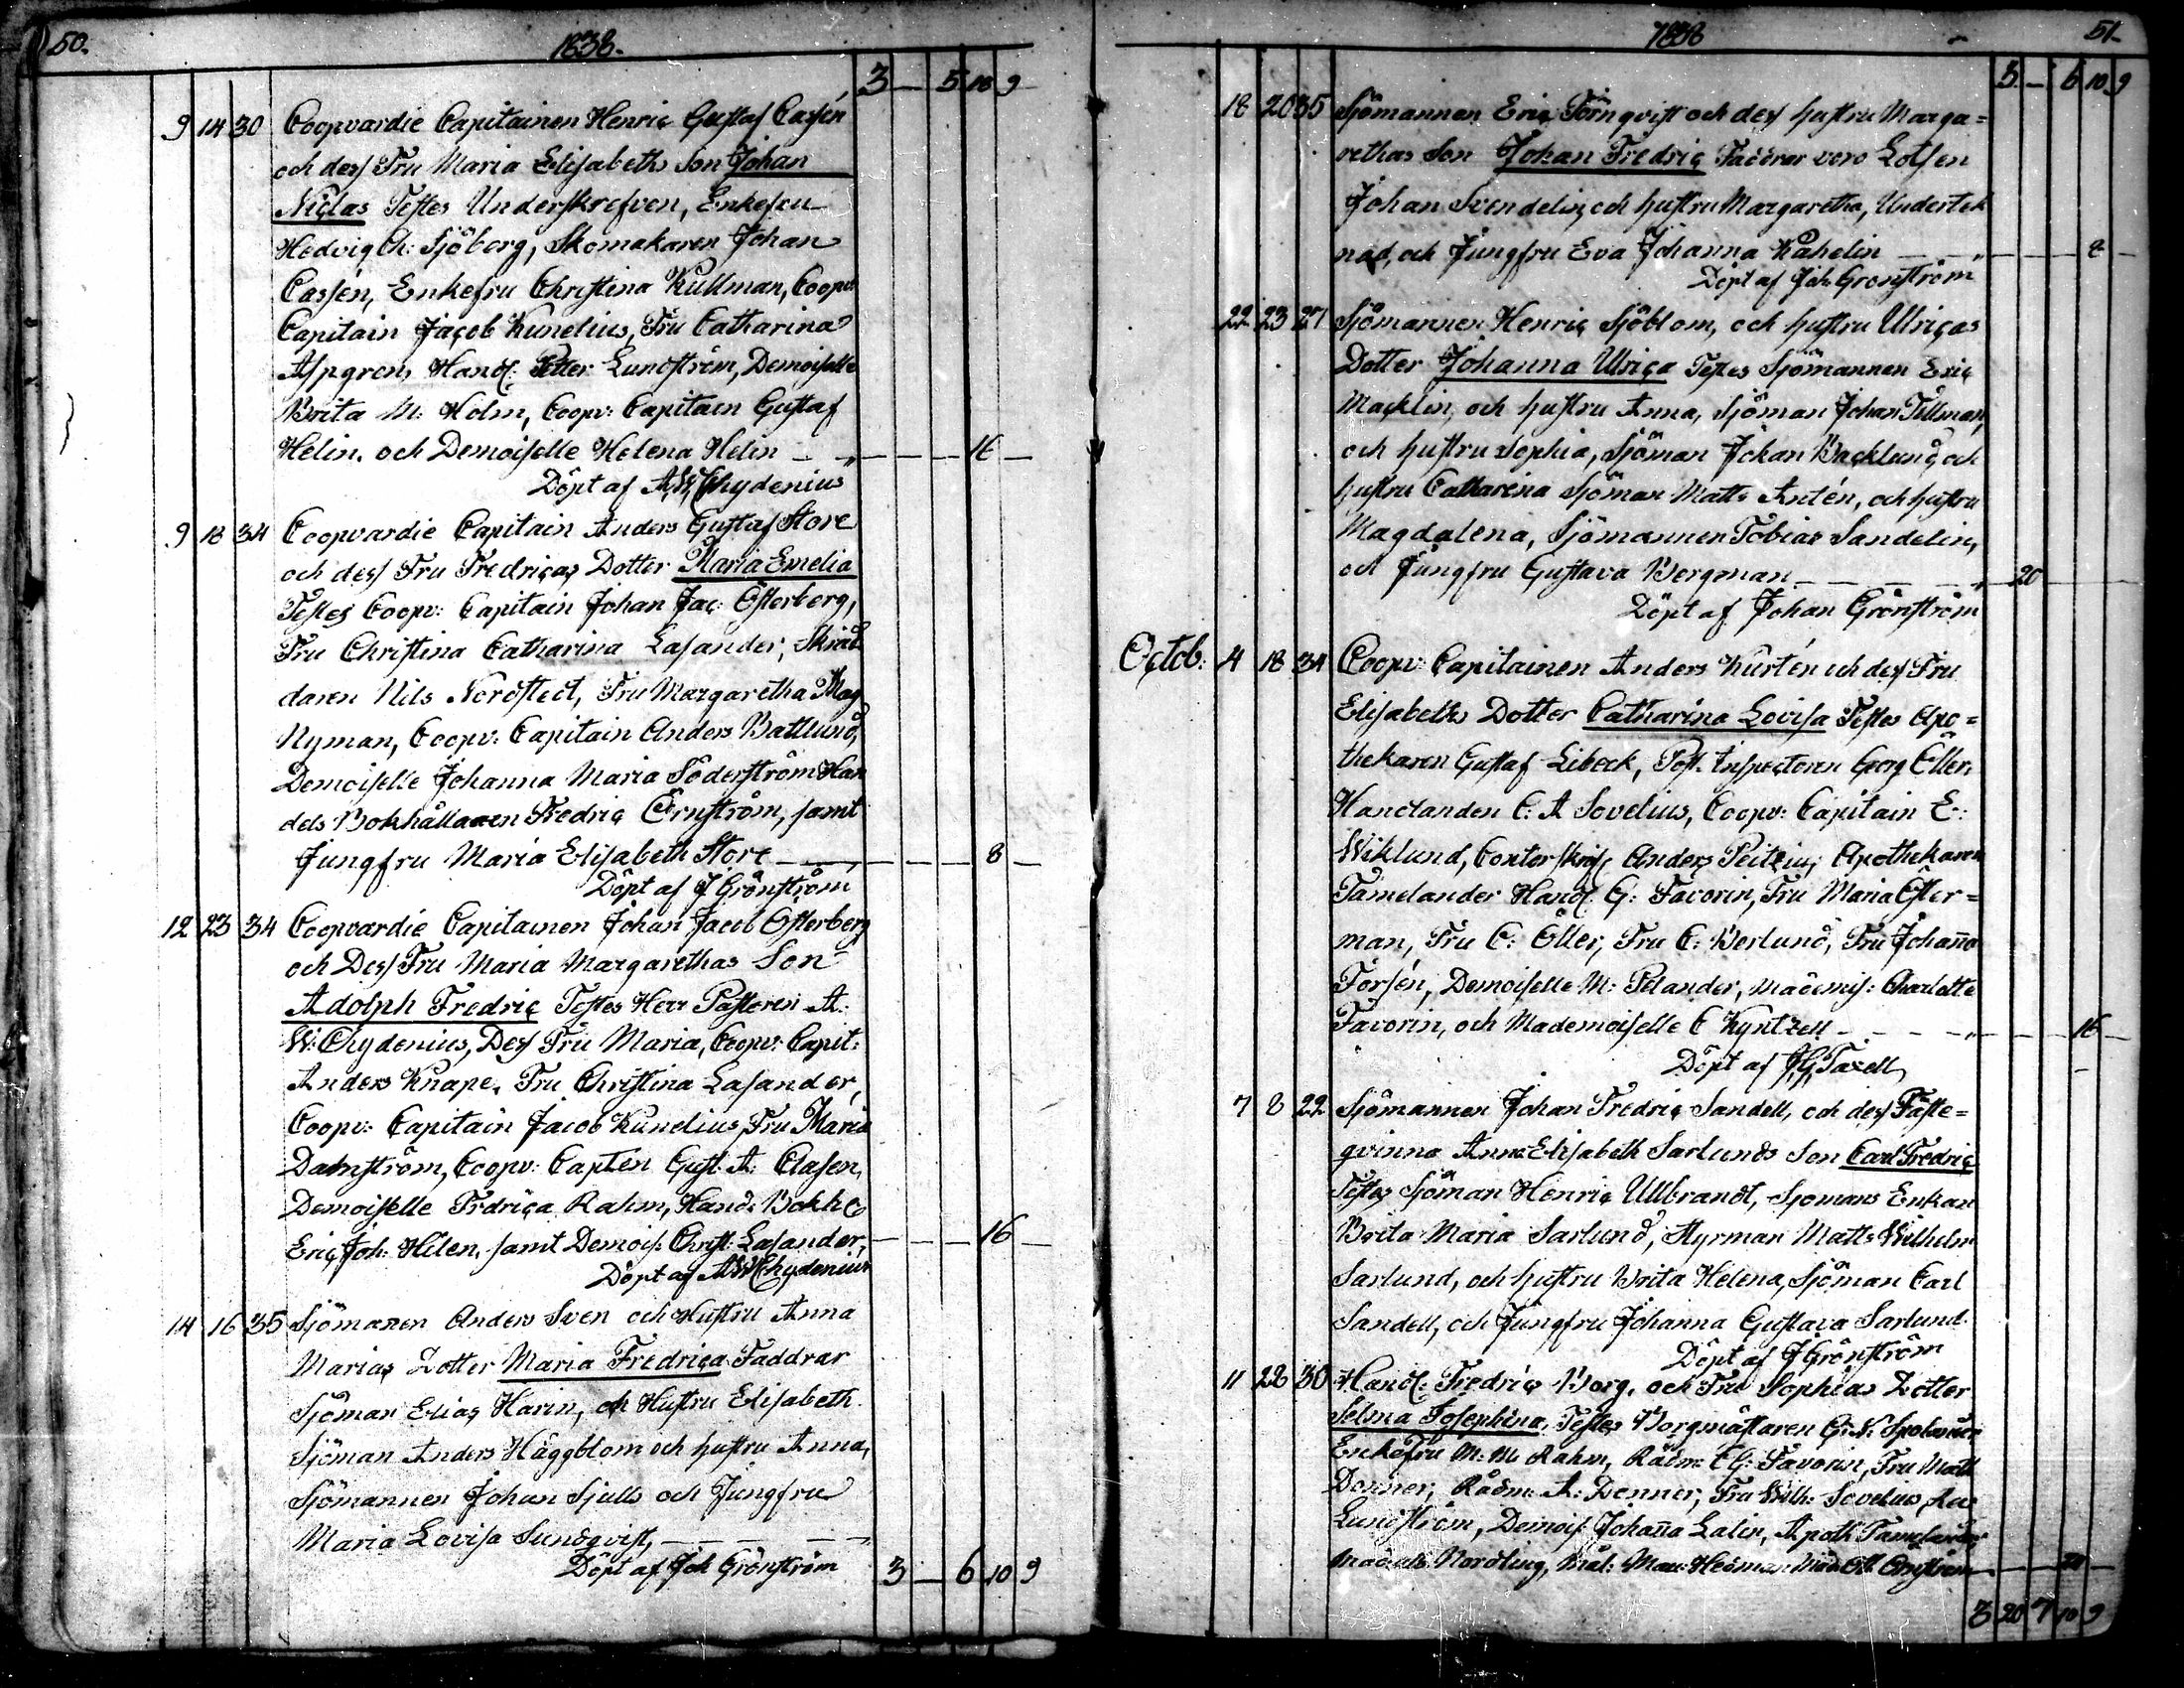 50. 1838.
3 — 5 18 9
9 14 30 Coopvardie Capitainen Henric Gustaf Cassén
och dess Fru Maria Elisabeths Son Johan
Niclas Testes Underskrefven, Enkefru
Hedvig Ch: Sjöberg, Skomakaren Johan
Cassén, Enkefru Christina Kullman, Coopv:
Capitain Jacob Kunelius, Fru Catharina
Aspgren, Handl: Petter Lundström, Demoiselle
Brita M: Holm, Coopv: Capitain Gustaf
Helin, och Demoiselle Helena Helin — 16 —
Döpt af A W Chydenius
9 18 34 Coopvardie Capitain Anders Gustaf Store
och dess Fru Fredricas Dotter Maria Emelia
Testes Coopv: Capitain Johan Jac: Österberg,
Fru Christina Catharina Lasander, Skräd
daren Nils Nordstedt, Fru Margaretha Mag
Nyman, Coopv: Capitain Anders Battlund,
Demoiselle Johanna Maria Söderström Han
dels Bokhållaren Fredric Örnström, samt
Jungfru Maria Elisabeth Store — 8 —
Döpt af J Grönström
12 23 34 Coopvardie Capitainen Johan Jacob Österberg
och Dess Fru Maria Margarethas Son
Adolph Fredric Testes Herr Pastoren A.
W: Chydenius, Dess Fru Maria, Coopv: Capit:
Anders Knape, Fru Christina Lasander,
Coopv: Capitain Jacob Kunelius, Fru Maria
Dalmström, Coopv: Captén Gust: A: Clasen,
Demoiselle Fredrica Rahm, Hand: Bokh
Eric Joh: Hilen, samt Demois: Christ: Lasander, — 16 —
Döpt af A W Chydenius
14 16 35 Sjömanen Anders Sven och Hustru Anna
Marias Dotter Maria Fredrica Faddrar
Sjöman Elias Harin, och Hustru Elisabeth
Sjöman Anders Häggblom och hustru Anna,
Sjömannen Johan Sjulls och Jungfru
Maria Lovisa Sundqvist, —
Döpt af Joh Grönström
3 — 6 10 9
1838 51.
3 — 6 10 9
18 20 35 Sjömannen Eric Törnqvist och dess hustru Marga=
rethas Son Johan Fredric Faddrar voro Lotsen
Johan Svendelin, och hustru Margaretha, Undertek
nad, och Jungfru Eva Johanna Kahelin — 8 —
Döpt af Joh Grönström
22 23 27 Sjömannen Henric Sjöblom, och hustru Ulricas
Dotter Johanna Ulrica Testes Sjömannen Eric
Macklin, och hustru Anna, Sjöman Johan Tillman,
och hustru Sophia, Sjöman Johan Backlund, och
hustru Catharina Sjöman Matts Antén, och hustru
Magdalena, Sjömannen Tobias Sandelin,
och Jungfru Gustava Bergman — 20
Döpt af Johan Grönström
Octob: 4 18 34 Coopv: Capitainen Anders Kurtén och dess Fru
Elisabeths Dotter Catharina Lovisa Testes Apo=
thekaren Gustaf Libeck, Post: Inspectoren Georg Öller,
Handlanden C: A Sovelius, Coopv: Capitain E:
Wiklund, Contorskrif: Anders Peitzius, Apothekaren
Tamelander Handl: G: Favorin, Fru Maria Öster=
man, Fru C: Öller, Fru C: Berlund, Fru Johanna
Forsén, Demoiselle M: Pelander, Mademois: Charlotte
Favorin, och Mademoiselle C Kyntzell — 16 —
Döpt af J G Taxell
7 8 22 Sjömannen Johan Fredric Sandell, och dess Fäste=
qvinna Anna Elisabeth Sarlunds Son Carl Fredric
Testes Sjöman Henric Ullbrandt, Sjömans Enkan
Brita Maria Sarlund, Styrman Matts Wilhelm
Sarlund, och hustru Brita Helena, Sjöman Carl
Sandell, och Jungfru Johanna Gustava Sarlund.
Döpt af J Grönström
11 22 30 Handl: Fredric Borg, och Fru Sophias Dotter
Selma Josephina, Testes Borgmästaren
Enkefru M: M: Rahm, Rådm: G: Favorin, Fru Math
Donner, Rådm: A: Donner, Fru Wilh: Sovelius,
Lundström, Demois: Johanna Lalin, Apoth: Tamelander,
Nordling, Mål: Hedman — 20 —
3 20 7 10 9